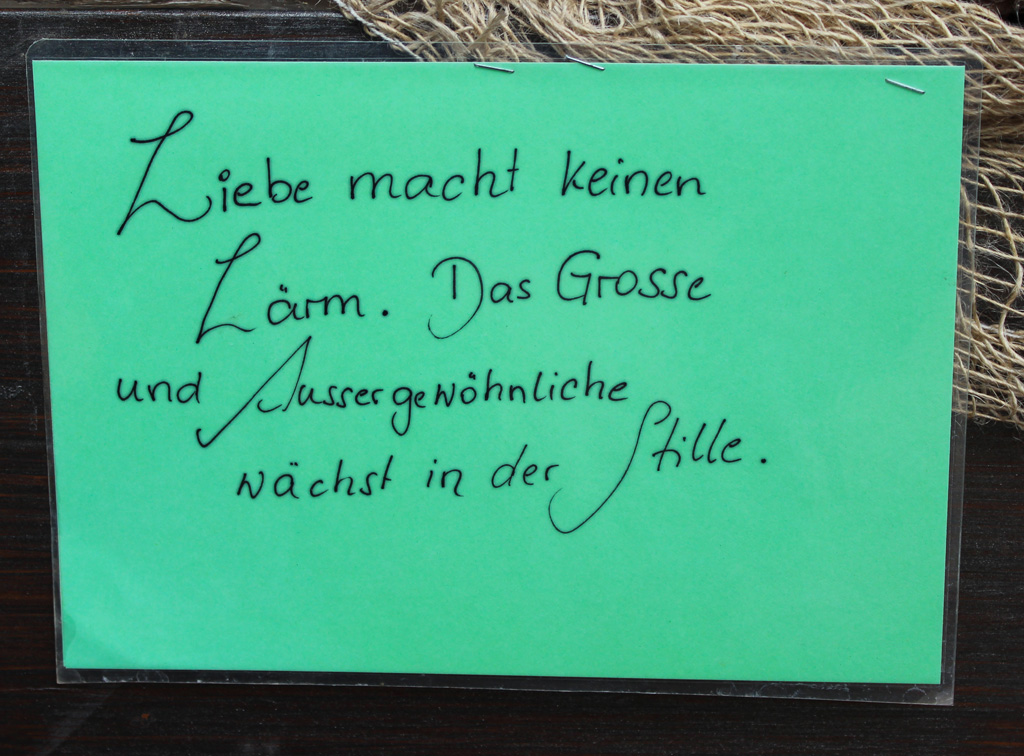 Liebe macht keinen
Lärm. Das Grosse
und Aussergewöhnliche
wächst in der Stille.